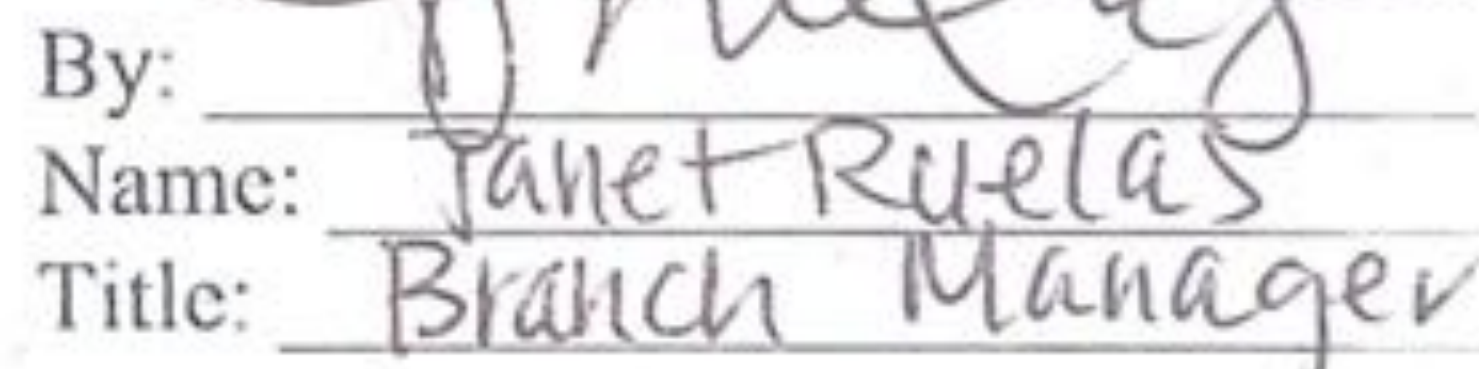 By:
Name: Janet Ruelas
Title: Branch Manager